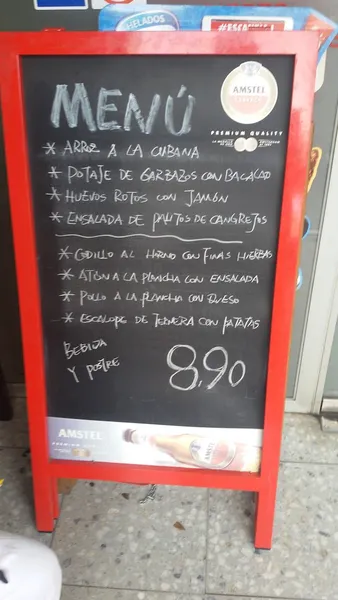 HELADOS
MENÚ
AMSTEL
PREMIUM QUALITY
* ARROZ A LA CUBANA
* POTAJE DE GARBAZOS CON BACALAO
* HUEVOS ROTOS CON JAMÓN
* ENSALADA DE PALITOS DE CANGREJOS
* CODILLO AL HORNO CON FINAS HIERBAS
* ATÚN A LA PLANCHA CON ENSALADA
* POLLO A LA PLANCHA CON QUESO
* ESCALOPE DE TERNERA CON PATATAS
BEBIDA
Y POSTRE
8,90
AMSTEL
AMSTEL